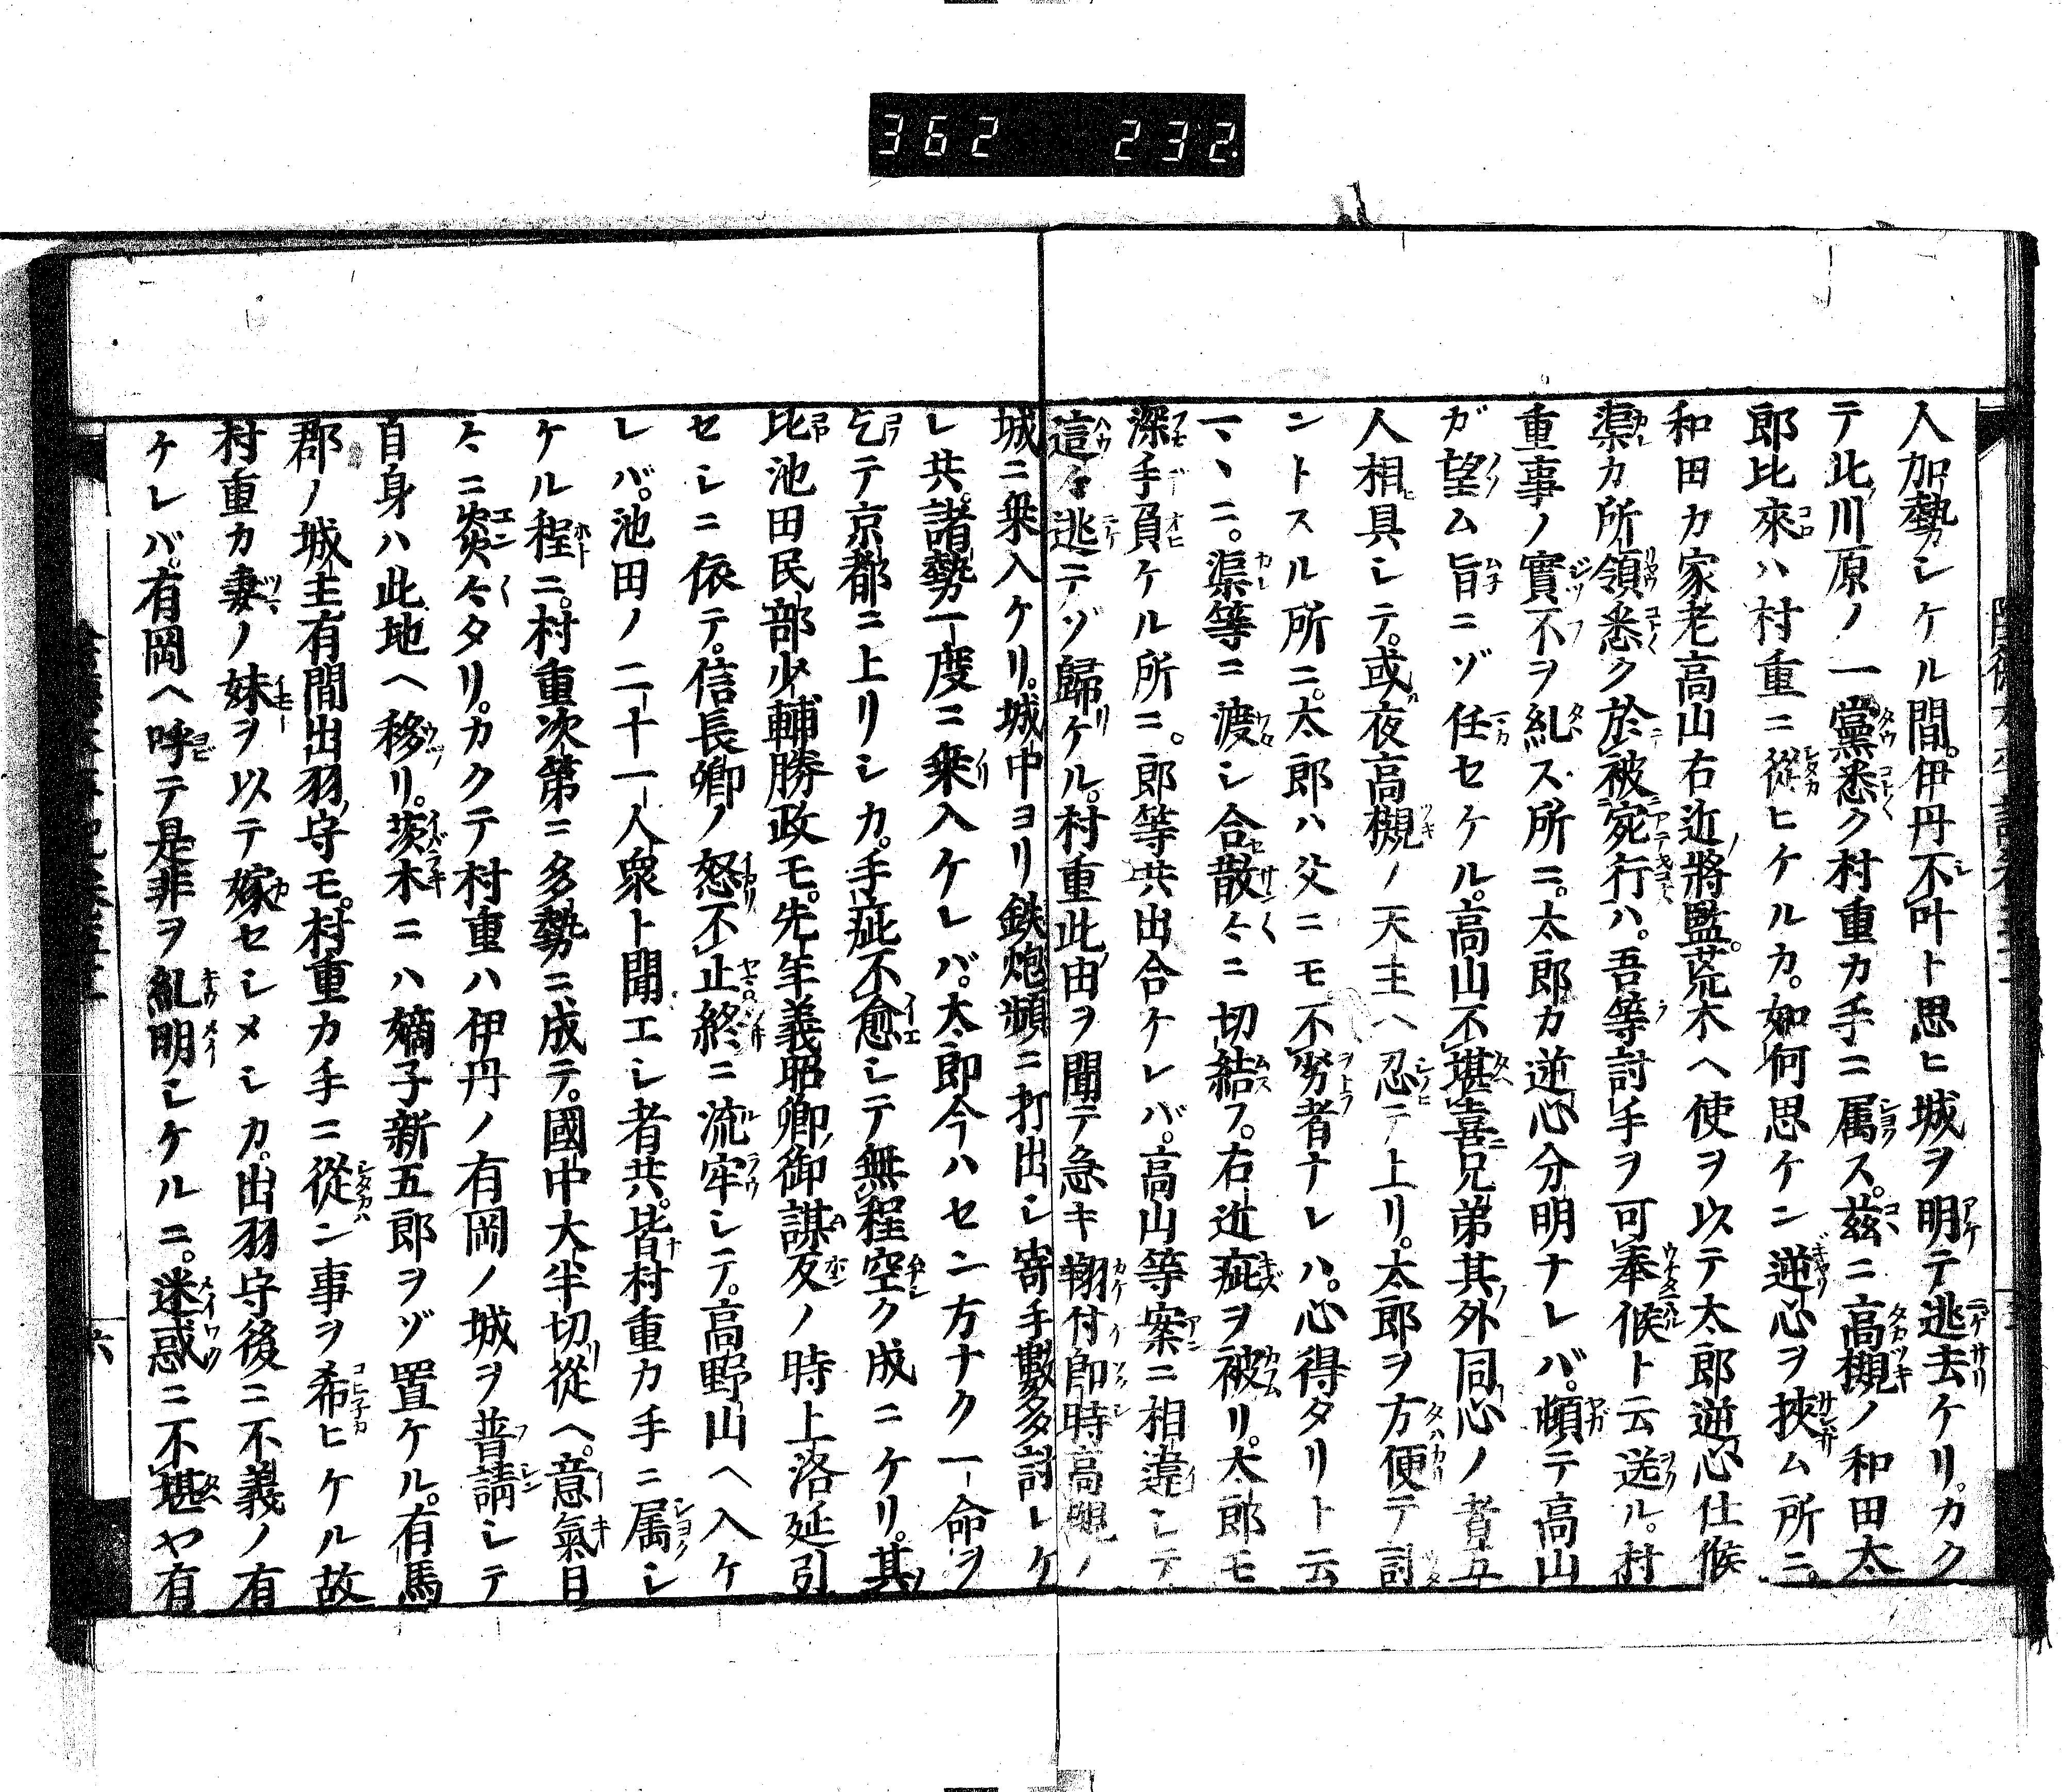 362 232
人加勢シケル間。伊丹不叶ト思ヒ城ヲ明テ逃去ケリ。カク
テ此川原ノ一黨悉ク村重カ手ニ属ス。茲ニ高槻ノ和田太
郎比來ハ村重ニ從ヒケルカ。如何思ケン逆心ヲ挾ム所ニ。
和田カ家老高山右近將監。荒木ヘ使ヲ以テ太郎逆心仕候
渠カ所領悉ク於被宛行ハ。吾等討手ヲ可奉候ト云送ル。村
重事ノ實不ヲ糺ス所ニ。太郎カ逆心分明ナレバ。頓テ高山
ガ望ム旨ニゾ任セケル。高山不堪喜兄弟其外同心ノ者五
人相具シテ。或夜高槻ノ天主ヘ忍テ上リ。太郎ヲ方便テ討
ントスル所ニ。太郎ハ父ニモ不劣者ナレハ。心得タリト云
一、ニ。渠等ニ渡シ合散々ニ切結フ。右近疵ヲ被リ。太郎モ
深手負ケル所ニ。郎等共出合ケレバ。高山等案ニ相違シテ
這々逃テゾ歸ケル。村重此由ヲ聞テ急キ翔付即時高槻ノ
城ニ乗入ケリ。城中ヨリ鉄炮頻ニ打出シ寄手數多討レケ
レ共。諸勢一度ニ乗入ケレバ。太郎今ハセン方ナク一命ヲ
乞テ京都ニ上リシカ。手疵不愈シテ無程空ク成ニケリ。其
比池田民部少輔勝政モ。先年義昭卿御謀反ノ時上洛延引
セシニ依テ。信長卿ノ怒不止終ニ流牢シテ。高野山ヘ入ケ
レバ。池田ノ二十一人衆ト聞エシ者共。皆村重カ手ニ属シ
ケル程ニ。村重次第ニ多勢ニ成テ。國中大半切從ヘ。意氣日
々ニ炎々タリ。カクテ村重ハ伊丹ノ有岡ノ城ヲ普請シテ
自身ハ此地ヘ移リ。茨木ニハ嫡子新五郎ヲゾ置ケル。有馬
郡ノ城主有間出羽守モ。村重カ手ニ從ン事ヲ希ヒケル故
村重カ妻ノ妹ヲ以テ嫁セシメシカ。出羽守後ニ不義ノ有
ケレバ。有岡ヘ呼テ是非ヲ糺明シケルニ。迷惑ニ不堪ヤ有
六